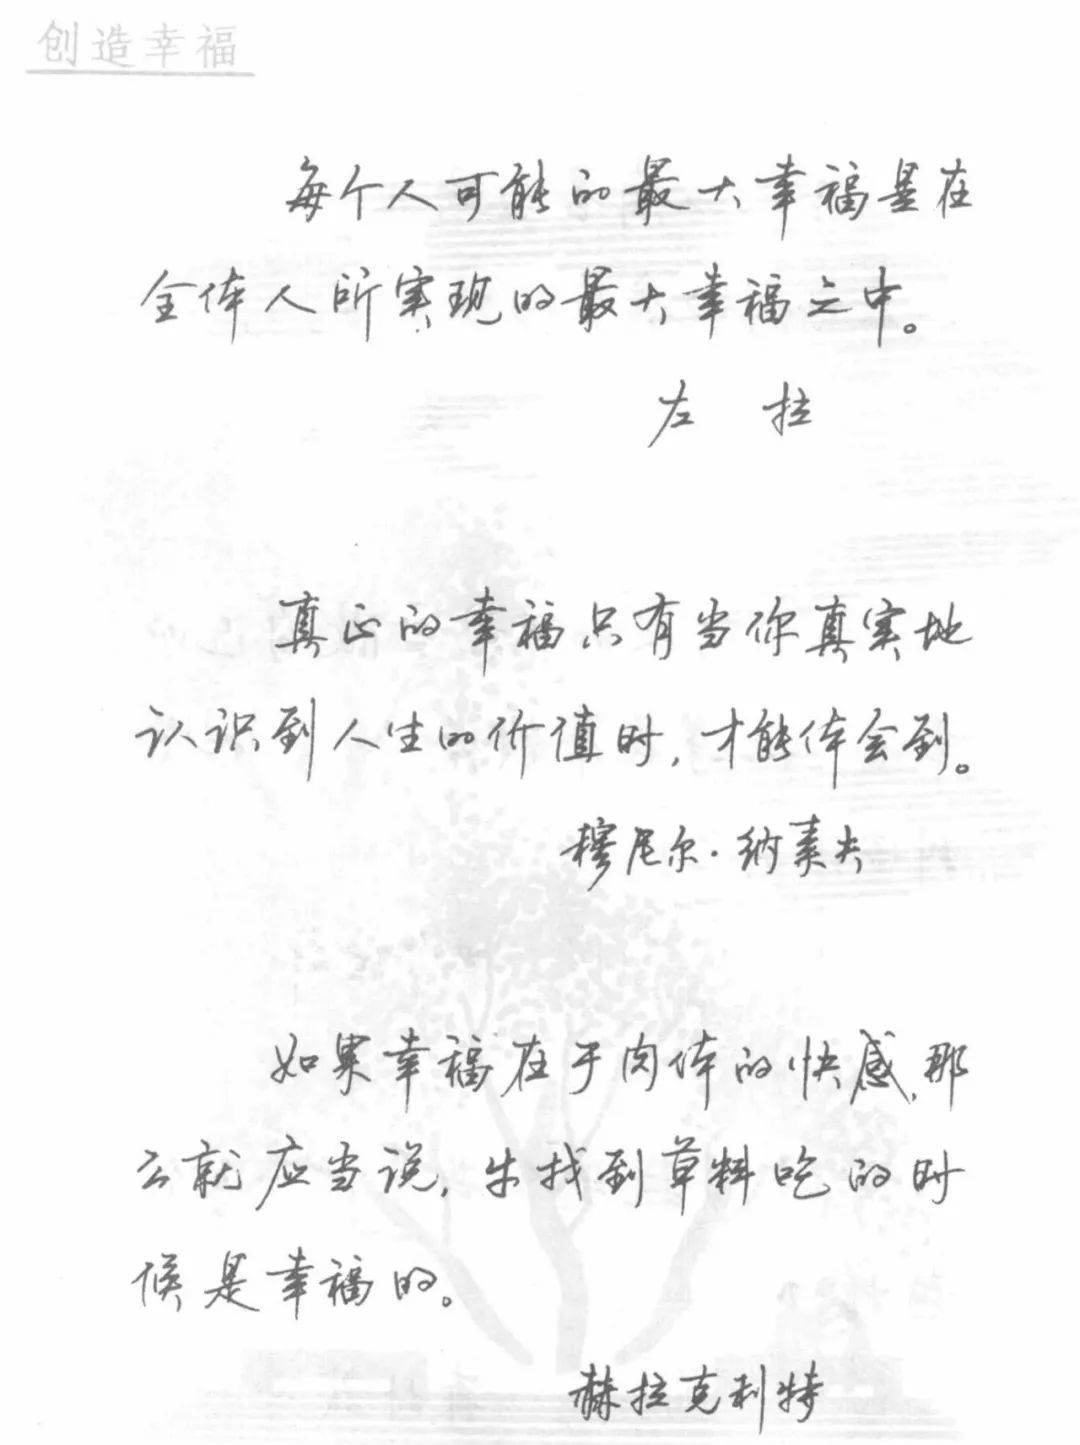 创造幸福
每个人可能的最大幸福是在
全体人所实现的最大幸福之中。
左 拉
真正的幸福只有当你真实地
认识到人生的价值时,才能体会到。
穆尼尔·纳素夫
如果幸福在于肉体的快感,那
么就应当说,牛找到草料吃的时
候是幸福的。
赫拉克利特